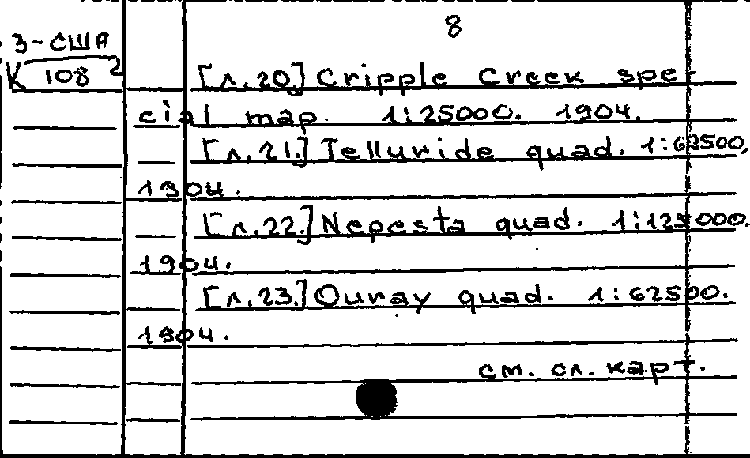 8
3-США
К 108²
[л.20] Cripple Creek spe-
cial map. 1:25000. 1904.
[л.21.] Telluride quad. 1:62500,
1904.
[л.22.] Nepesta quad. 1:125000.
1904.
[л.23.] Ouray quad. 1:62500.
1904.
см. сл. карт.